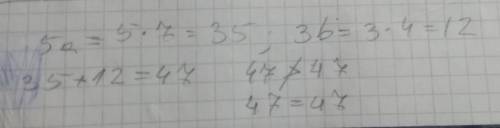 5a = 5·7 = 35; 3b = 3·4 = 12
35+12=47 47>47
47=47